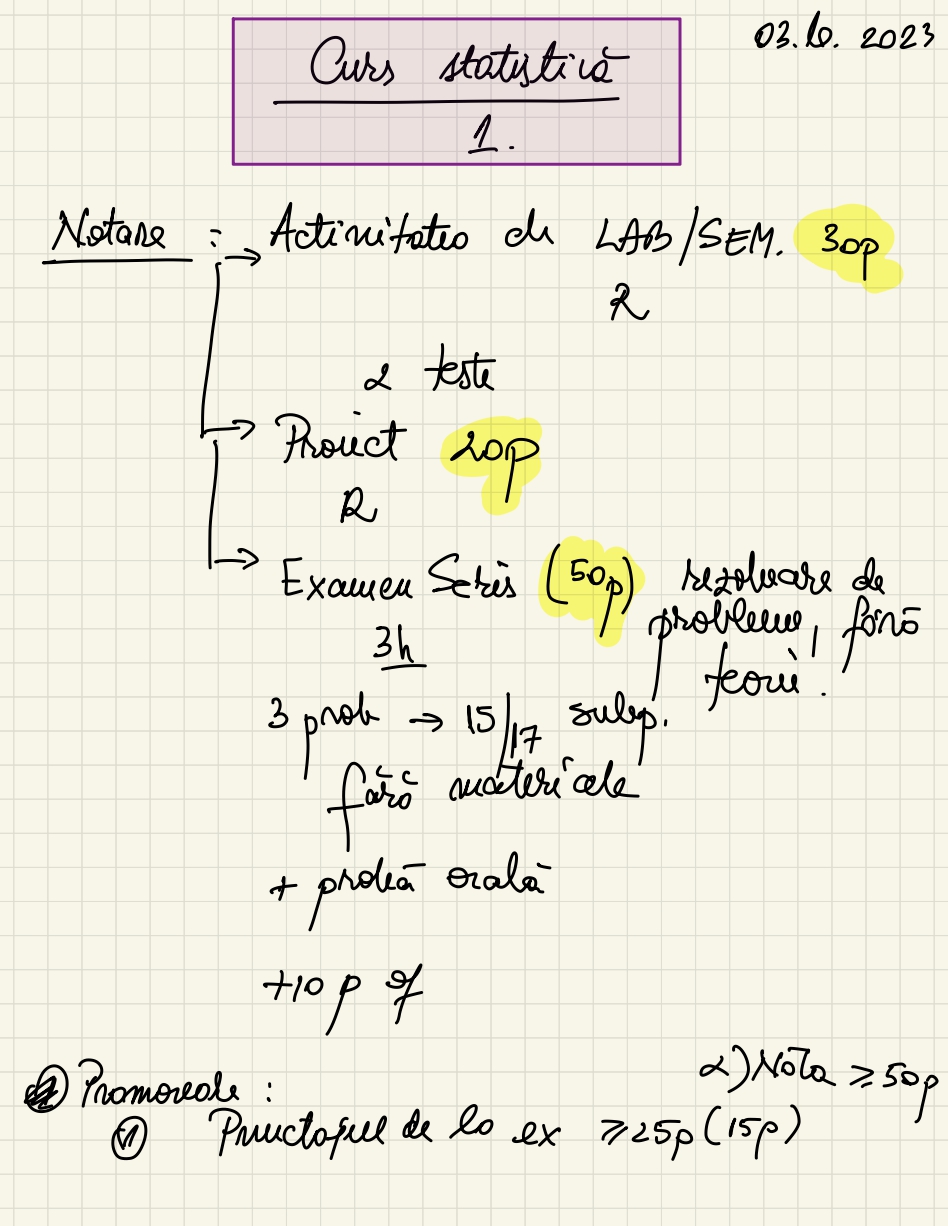 03.10.2023
Curs statistică
1.
Notare : → Activitatea de LAB/SEM. 30p
R
2 teste
→ Proiect 20p
R
→ Examen Scris (50p) rezolvare de
probleme, fără
teorie.
3h
3 prob → 15/17 subp.
fără materiale
+ probă orală
+10 p of
Promovare :
2) Nota ≥ 50p
1 Punctajul de la ex ≥ 25p (15p)